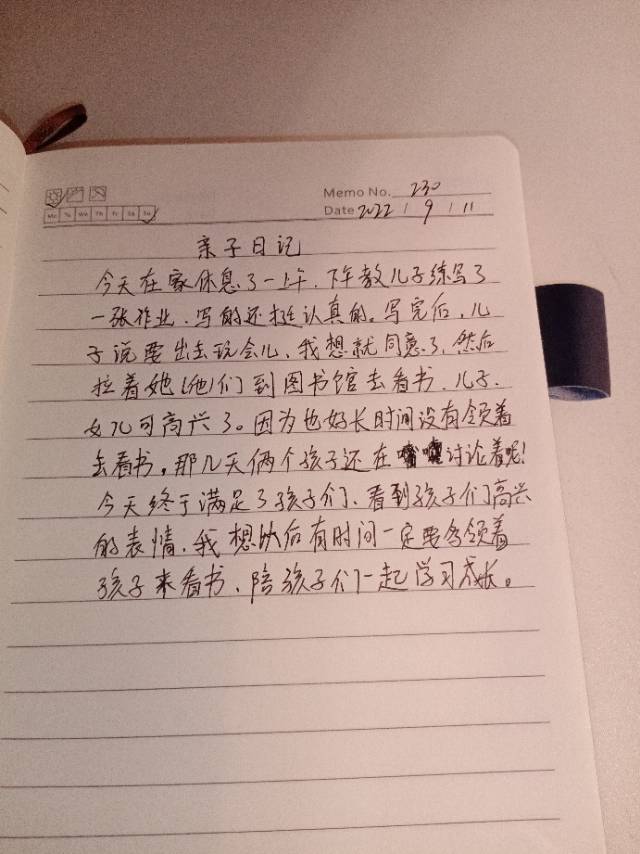 Memo No. 230
Mo Tu We Th Fr Sa Su
Date 2022 / 9 / 11
亲子日记
今天在家休息了一上午，下午教儿子练写了
一张作业，写的还挺认真的。写完后，儿
子说要出去玩会儿，我想就同意了，然后
拉着她(他)们到图书馆去看书，儿子、
女儿可高兴了。因为也好长时间没有领着
去看书，那几天俩个孩子还在讨论着呢!
今天终于满足了孩子们，看到孩子们高兴
的表情，我想以后有时间一定要多领着
孩子来看书，陪孩子们一起学习成长。